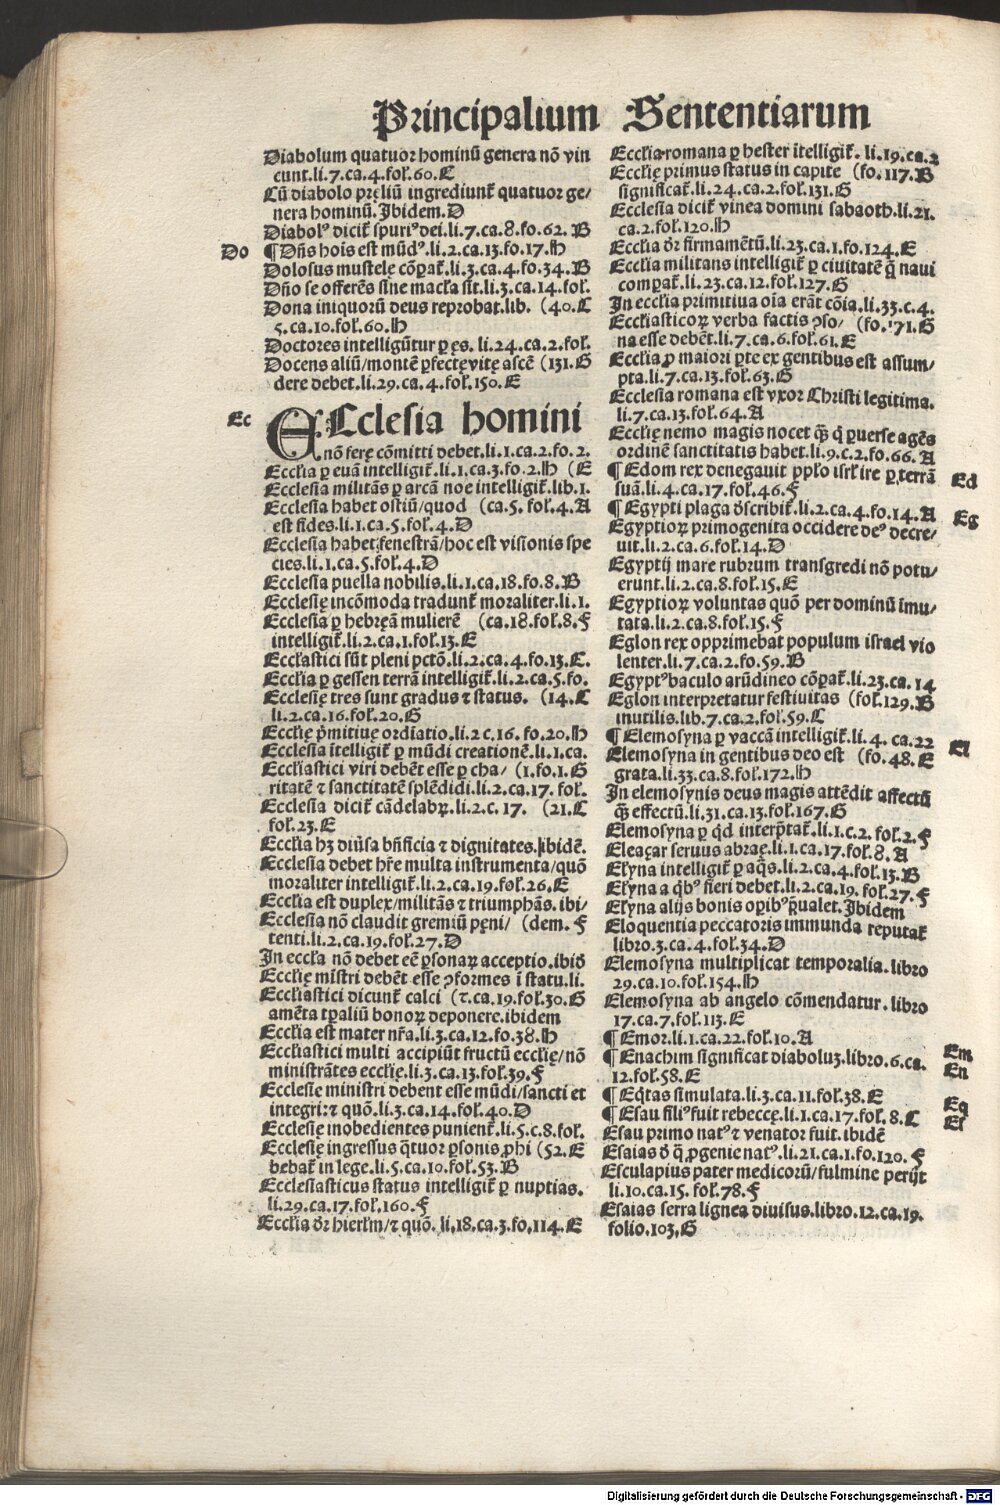 Principalium Sententiarum
Diabolum quatuor hominū genera nō vin
cunt.li.7.ca.4.fol.60.C
Cū diabolo pręliū ingrediunt̄ quatuor ge/
nera hominū. Ibidem.D
Diabolꝰ dicit̄ spuriꝰ dei.li.7.ca.8.fo.62.B
Do
¶ Dn̄s hoīs est mūdꝰ.li.2.ca.13.fo.17.H
Dolosus mustelę cōꝑat̄.li.3.ca.4.fo.34.B
Dn̄o se offerēs sine macl̄a sit.li.3.ca.14.fol.
Dona iniquorū deus reprobat.lib. (40.C
5.ca.10.fol.60.H
Doctores intelligūtur ꝑ ęs. li.24.ca.2.fol.
Docens aliū/montē ꝑfectę vitę ascē (131.G
dere debet.li.29.ca.4.fol.150.E
Ec
ECclesia homini
nō ferę cōmitti debet.li.1.ca.2.fo.2.
Eccl̄ia ꝑ euā intelligit̄.li.1.ca.3.fo.2.H (E
Ecclesia militās ꝑ arcā noe intelligit̄.lib.1.
Ecclesia habet ostiū/quod (ca.5.fol.4.A
est fides.li.1.ca.5.fol.4.D
Ecclesia habet fenestrā/hoc est visionis spe
cies.li.1.ca.5.fol.4.D
Ecclesia puella nobilis.li.1.ca.18.fo.8.B
Ecclesię incōmoda tradunt̄ moraliter.li.1.
Ecclesia ꝑ hebręā mulierē (ca.18.fol.8.F
intelligit̄.li.2.ca.1.fol.13.E
Eccl̄astici sūt pleni pctō.li.2.ca.4.fo.13.C.
Eccl̄ia ꝑ gessen terrā intelligit̄.li.2.ca.5.fo.
Ecclesię tres sunt gradus ⁊ status. (14.C
li.2.ca.16.fol.20.G
Eccl̄ię pͥmitiuę ordīatio.li.2 c.16.fo.20.H
Ecclesia ītelligit̄ ꝑ mūdi creationē.li.1.ca.
Eccl̄iastici viri debēt esse ꝑ cha/ (1.fo.1.G
ritatē ⁊ sanctitatē splēdidi.li.2.ca.17.fol.
Ecclesia dicit̄ cādelabꝝ.li.2.c.17. (21.C
fol.23.E
Eccl̄ia hꝫ diūsa bn̄ficia ⁊ dignitates.ibidē.
Ecclesia debet hr̄e multa instrumenta/quō
moraliter intelligit̄.li.2.ca.19.fol.26.E
Eccl̄ia est duplex/militās ⁊ triumphās. ibi/
Ecclesia nō claudit gremiū pęni/ (dem. F
tenti.li.2.ca.19.fol.27.D
In eccl̄a nō debet eē ꝑsonaꝝ acceptio.ibid
Eccl̄ię mīstri debēt esse ꝯformes ī statu.li.
Eccl̄iastici dicunt̄ calci (2.ca.19.fol.30.G
amēta tꝑaliū bonoꝝ deponere.ibidem
Eccl̄ia est mater nr̄a.li.3.ca.12.fo.38.H
Eccl̄iastici multi accipiūt fructū eccl̄ię/nō
ministrātes eccl̄ię.li.3.ca.13.fol.39.F
Ecclesię ministri debent esse mūdi/sancti et
integri:⁊ quō.li.3.ca.14.fol.40.D
Ecclesię inobedientes punient̄.li.5.c.8.fol.
Ecclesię ingressus qͣtuor ꝑsonis ꝓhi (52.E
bebat̄ in lege.li.5.ca.10.fol.53.B
Ecclesiasticus status intelligit̄ ꝑ nuptias.
li.29.ca.17.fol.160.F
Eccl̄ia dr̄ hierl̄m/⁊ quō. li.18.ca.3.fo.114.E
Eccl̄ia romana ꝑ hester ītelligit̄. li.19.ca.2
Eccl̄ię primus status in capite (fo.117.B
significat̄.li.24.ca.2.fol.131.G
Ecclesia dicit̄ vinea domini sabaoth.li.21.
ca.2.fol.120.H
Eccl̄ia dr̄ firmamētū.li.23.ca.1.fo.124.E
Eccl̄ia militans intelligit̄ ꝑ ciuitatē q̄ naui
comꝑat̄.li.23.ca.12.fol.127.G
In eccl̄ia primitiua oīa erāt cōia.li.33.c.4.
Eccl̄iasticoꝝ verba factis ꝯso/ (fo.171.G
na esse debēt.li.7.ca.6.fol.61.E
Eccl̄ia ꝓ maiori ꝑte ex gentibus est assum/
pta.li.7.ca.13.fol.63.G
Ecclesia romana est vxor Christi legitima.
li.7.ca.13.fol.64.A
Eccl̄ię nemo magis nocet qͣ̄ qͥ ꝑuerse agēs
ordinē sanctitatis habet.li.9.c.2.fo.66.A
¶ Edom rex denegauit ppl̄o isrl̄ ire ꝑ terrā
Ed
suā.li.4.ca.17.fol.46.F
¶ Egypti plaga dscribit̄.li.2.ca.4.fo.14.A
Eg
Egyptioꝝ primogenita occidere deꝰ decre/
uit.li.2.ca.6.fol.14.D
Egyptij mare rubrum transgredi nō potu/
erunt.li.2.ca.8.fol.15.E
Egyptioꝝ voluntas quō per dominū īmu/
tata.li.2.ca.8.fol.15.F
Eglon rex opprimebat populum israel vio
lenter.li.7.ca.2.fo.59.B
Egyptꝰ baculo arūdineo cōꝑat̄.li.23.ca.14
Eglon interpretatur festiuitas (fol.129.B
inutilis.lib.7.ca.2.fol.59.C
¶ Elemosyna ꝑ vaccā intelligit̄.li.4. ca.22
El
Elemosyna in gentibus deo est (fo.48.E
grata.li.33.ca.8.fol.172.H
In elemosynis deus magis attēdit affectū
qͣ̄ effectū.li.31.ca.13.fol.167.G
Elemosyna ꝑ qͥd interp̄tat̄.li.1.c.2.fol.2.F
Eleaçar seruus abraę.li.1.ca.17.fol.8.A
El̄yna intelligit̄ ꝑ aqͣs.li.2.ca.4.fol.13.B
El̄yna a qͥbꝰ fieri debet.li.2.ca.19.fol.27.F
El̄yna alijs bonis oꝑibꝰ p̄ualet. Ibidem
Eloquentia peccatoris immunda reputat̄
libro.3.ca.4.fol.34.D
Elemosyna multiplicat temporalia.libro
29.ca.10.fol.154.H
Elemosyna ab angelo cōmendatur.libro
17.ca.7.fol.113.E
¶ Emor.li.1.ca.22.fol.10.A
Em
¶ Enachim significat diabolū.libro.6.ca.
En
12.fol.58.E
¶ Eqͥtas simulata.li.3.ca.11.fol.38.E
Eq
¶ Esau filiꝰ fuit rebeccę.li.1.ca.17.fol.8.C
Es
Esau primo natꝰ ⁊ venator fuit.ibidē
Esaias d qͣ ꝓgenie natꝰ.li.21.ca.1.fo.120.F
Esculapius pater medicorū/fulmine perijt
li.10.ca.15.fol.78.F
Esaias serra lignea diuisus.libro.12.ca.19.
folio.103.G
Digitalisierung gefördert durch die Deutsche Forschungsgemeinschaft - DFG